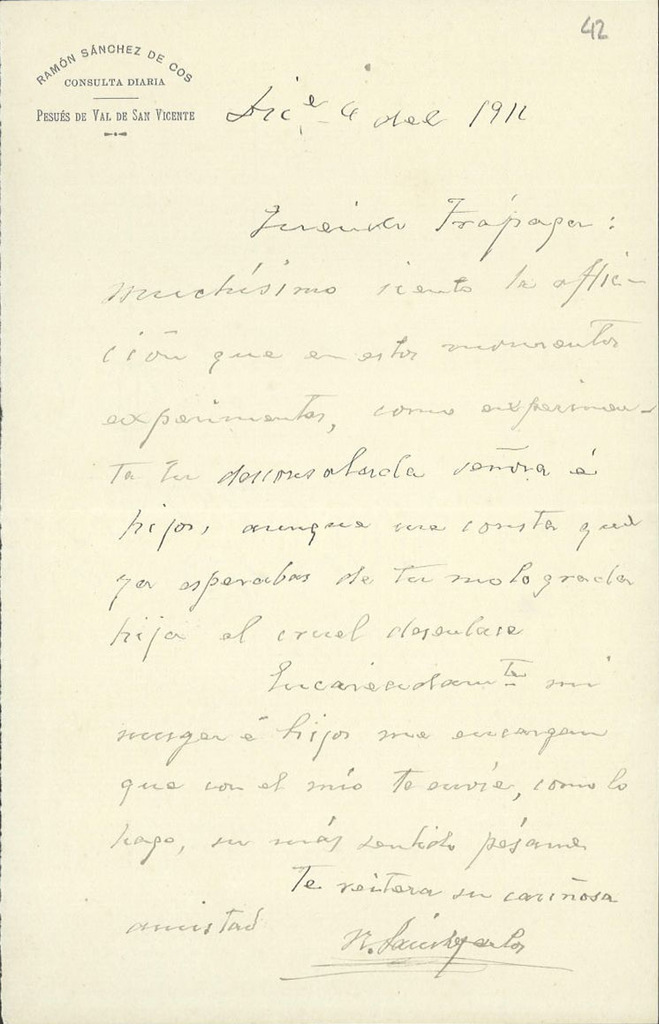 42
RAMÓN SÁNCHEZ DE COS
CONSULTA DIARIA
PESUÉS DE VAL DE SAN VICENTE
Dic.e 4 del 1911
Trápaga:
muchísimo siento la aflic-
ción que en estos momentos
experimentas, como experimen-
ta tu desconsolada señora é
hijos, aunque me consta que
ya esperabas de tu malograda
hija el cruel desenlace
Encarecidamte mi
muger é hijos me encargan
que con el mío te envíe, como lo
hago, su más sentido pésame
Te reitera su cariñosa
amistad
R. Sánchez de Cos